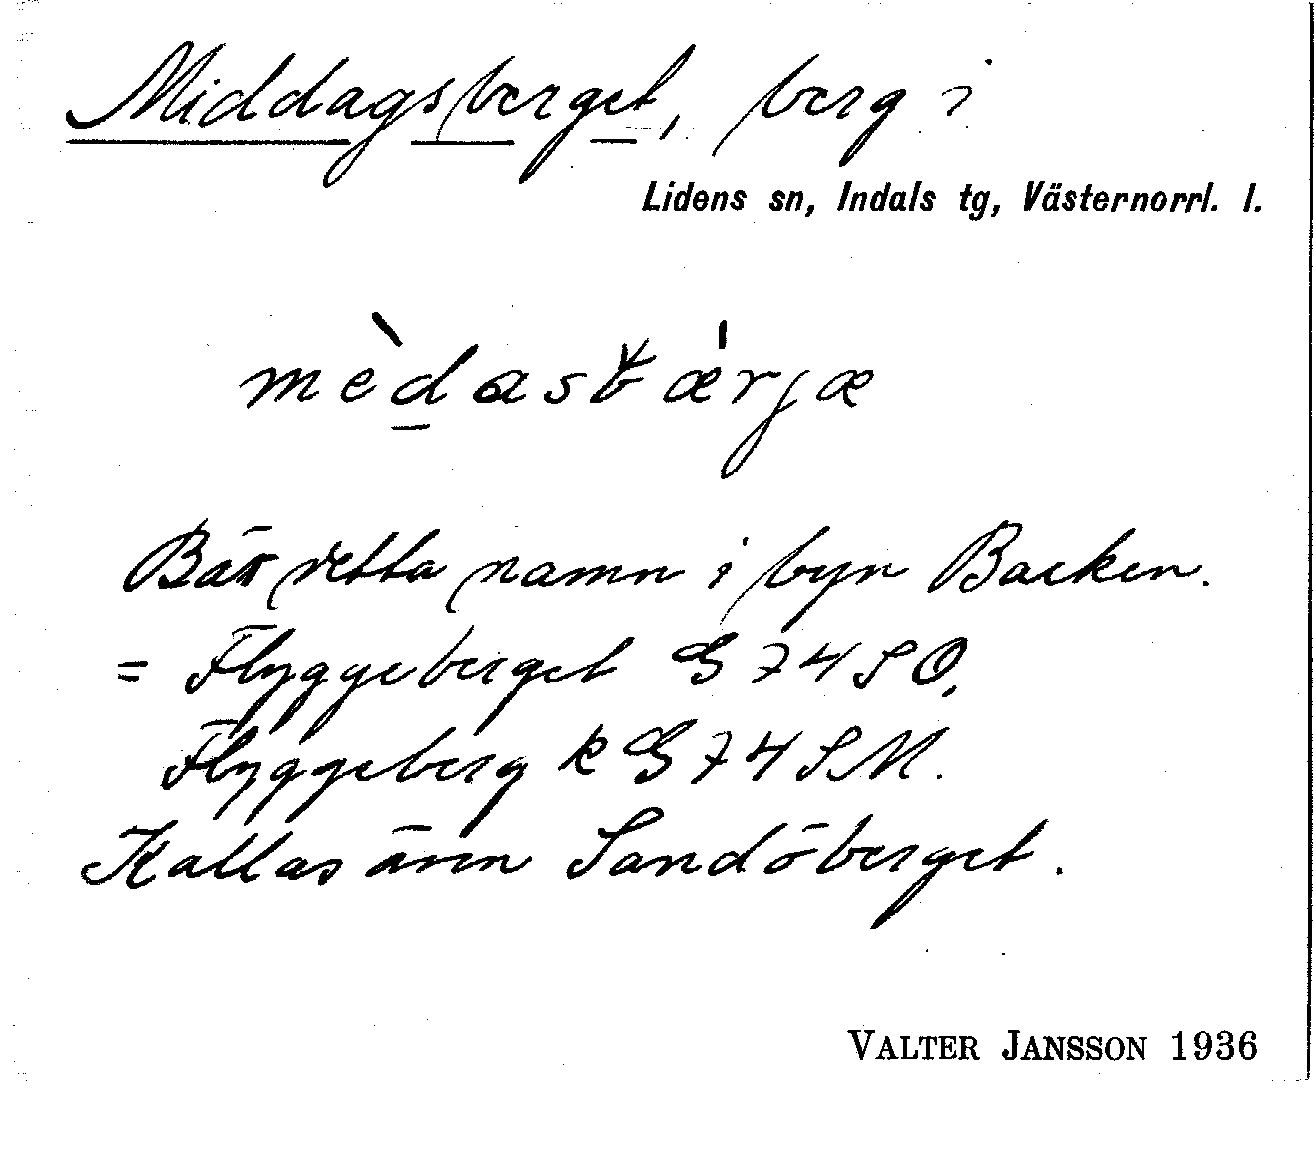 Middagsberget, berg i
Lidens sn, Indals tg, Västernorrl. l.
mèdasbǽrjæ
Bär detta namn i byn Backen.
= Flyggeberget G 74 SO,
Flyggeberg k G 74 SM.
Kallas även Sandöberget.
VALTER JANSSON 1936